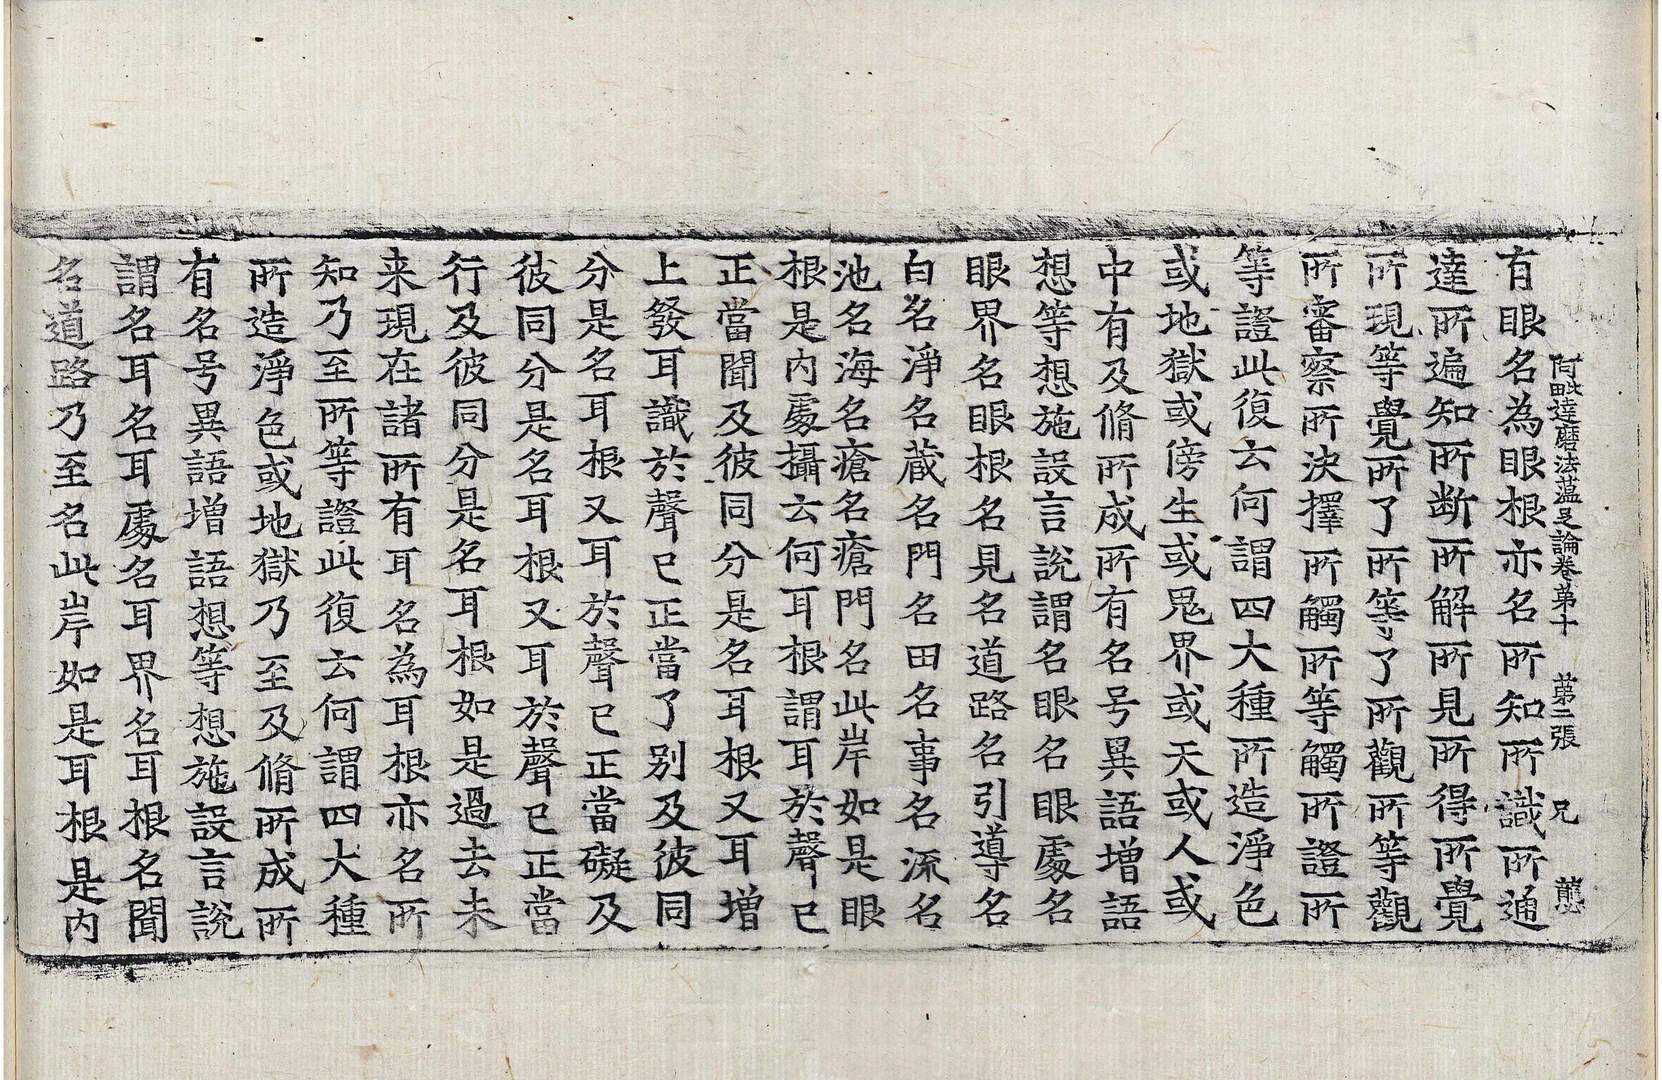 阿毗達磨法蘊足論卷第十 第二張 兄
有眼名為眼根亦名所知所識所通
達所遍知所断所解所見所得所覺
所現等覺所了所等了所觀所等觀
所審察所決擇所觸所等觸所證所
等證此復云何謂四大種所造淨色
或地獄或傍生或鬼界或天或人或
中有及脩所成所有名号異語增語
想等想施設言說謂名眼名眼處名
眼界名眼根名見名道路名引導名
白名淨名蔵名門名田名事名流名
池名海名瘡名瘡門名此岸如是眼
根是內處攝云何耳根謂耳於聲已
正當聞及彼同分是名耳根又耳增
上發耳識於聲已正當了别及彼同
分是名耳根又耳於聲已正當礙及
彼同分是名耳根又耳於聲已正當
行及彼同分是名耳根如是過去未
来現在諸所有耳名為耳根亦名所
知乃至所等證此復云何謂四大種
所造淨色或地獄乃至及脩所成所
有名号異語增語想等想施設言說
謂名耳名耳處名耳界名耳根名聞
名道路乃至名此岸如是耳根是內